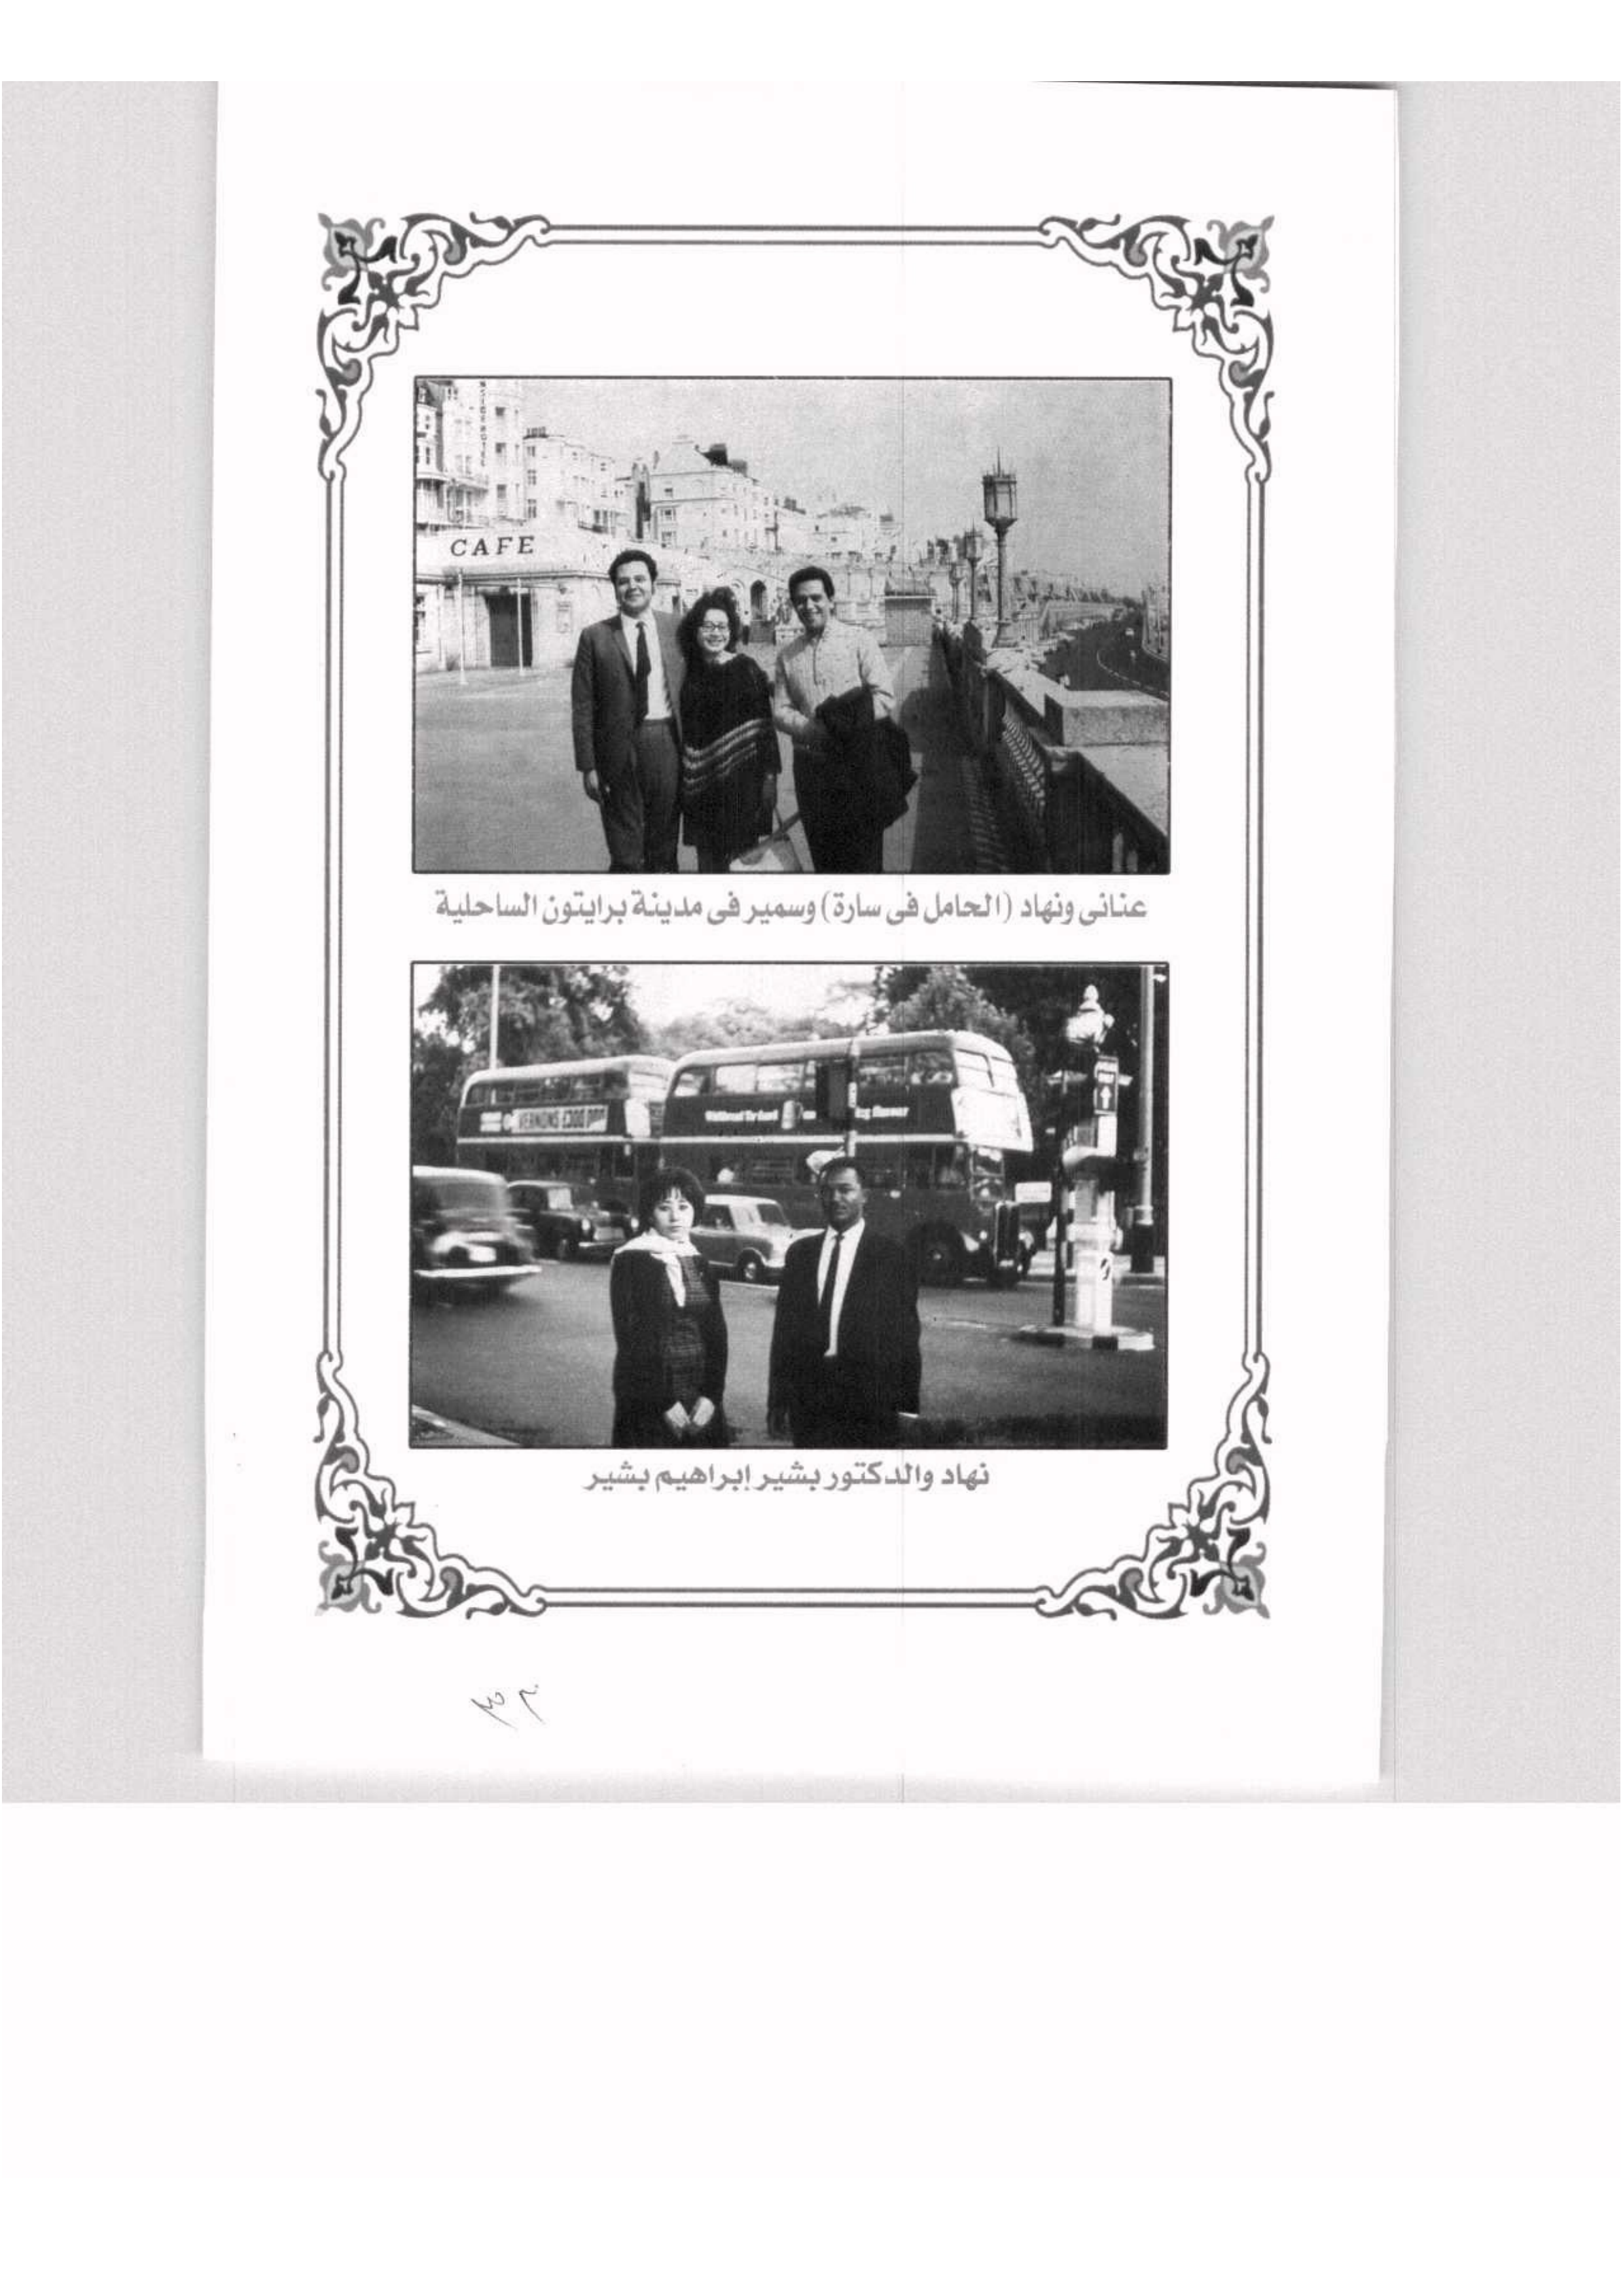 CAFE
عنانى ونهاد (الحامل فى سارة) وسمير فى مدينة برايتون الساحلية
VERNONS £300,000
نهاد والدكتور بشير إبراهيم بشير